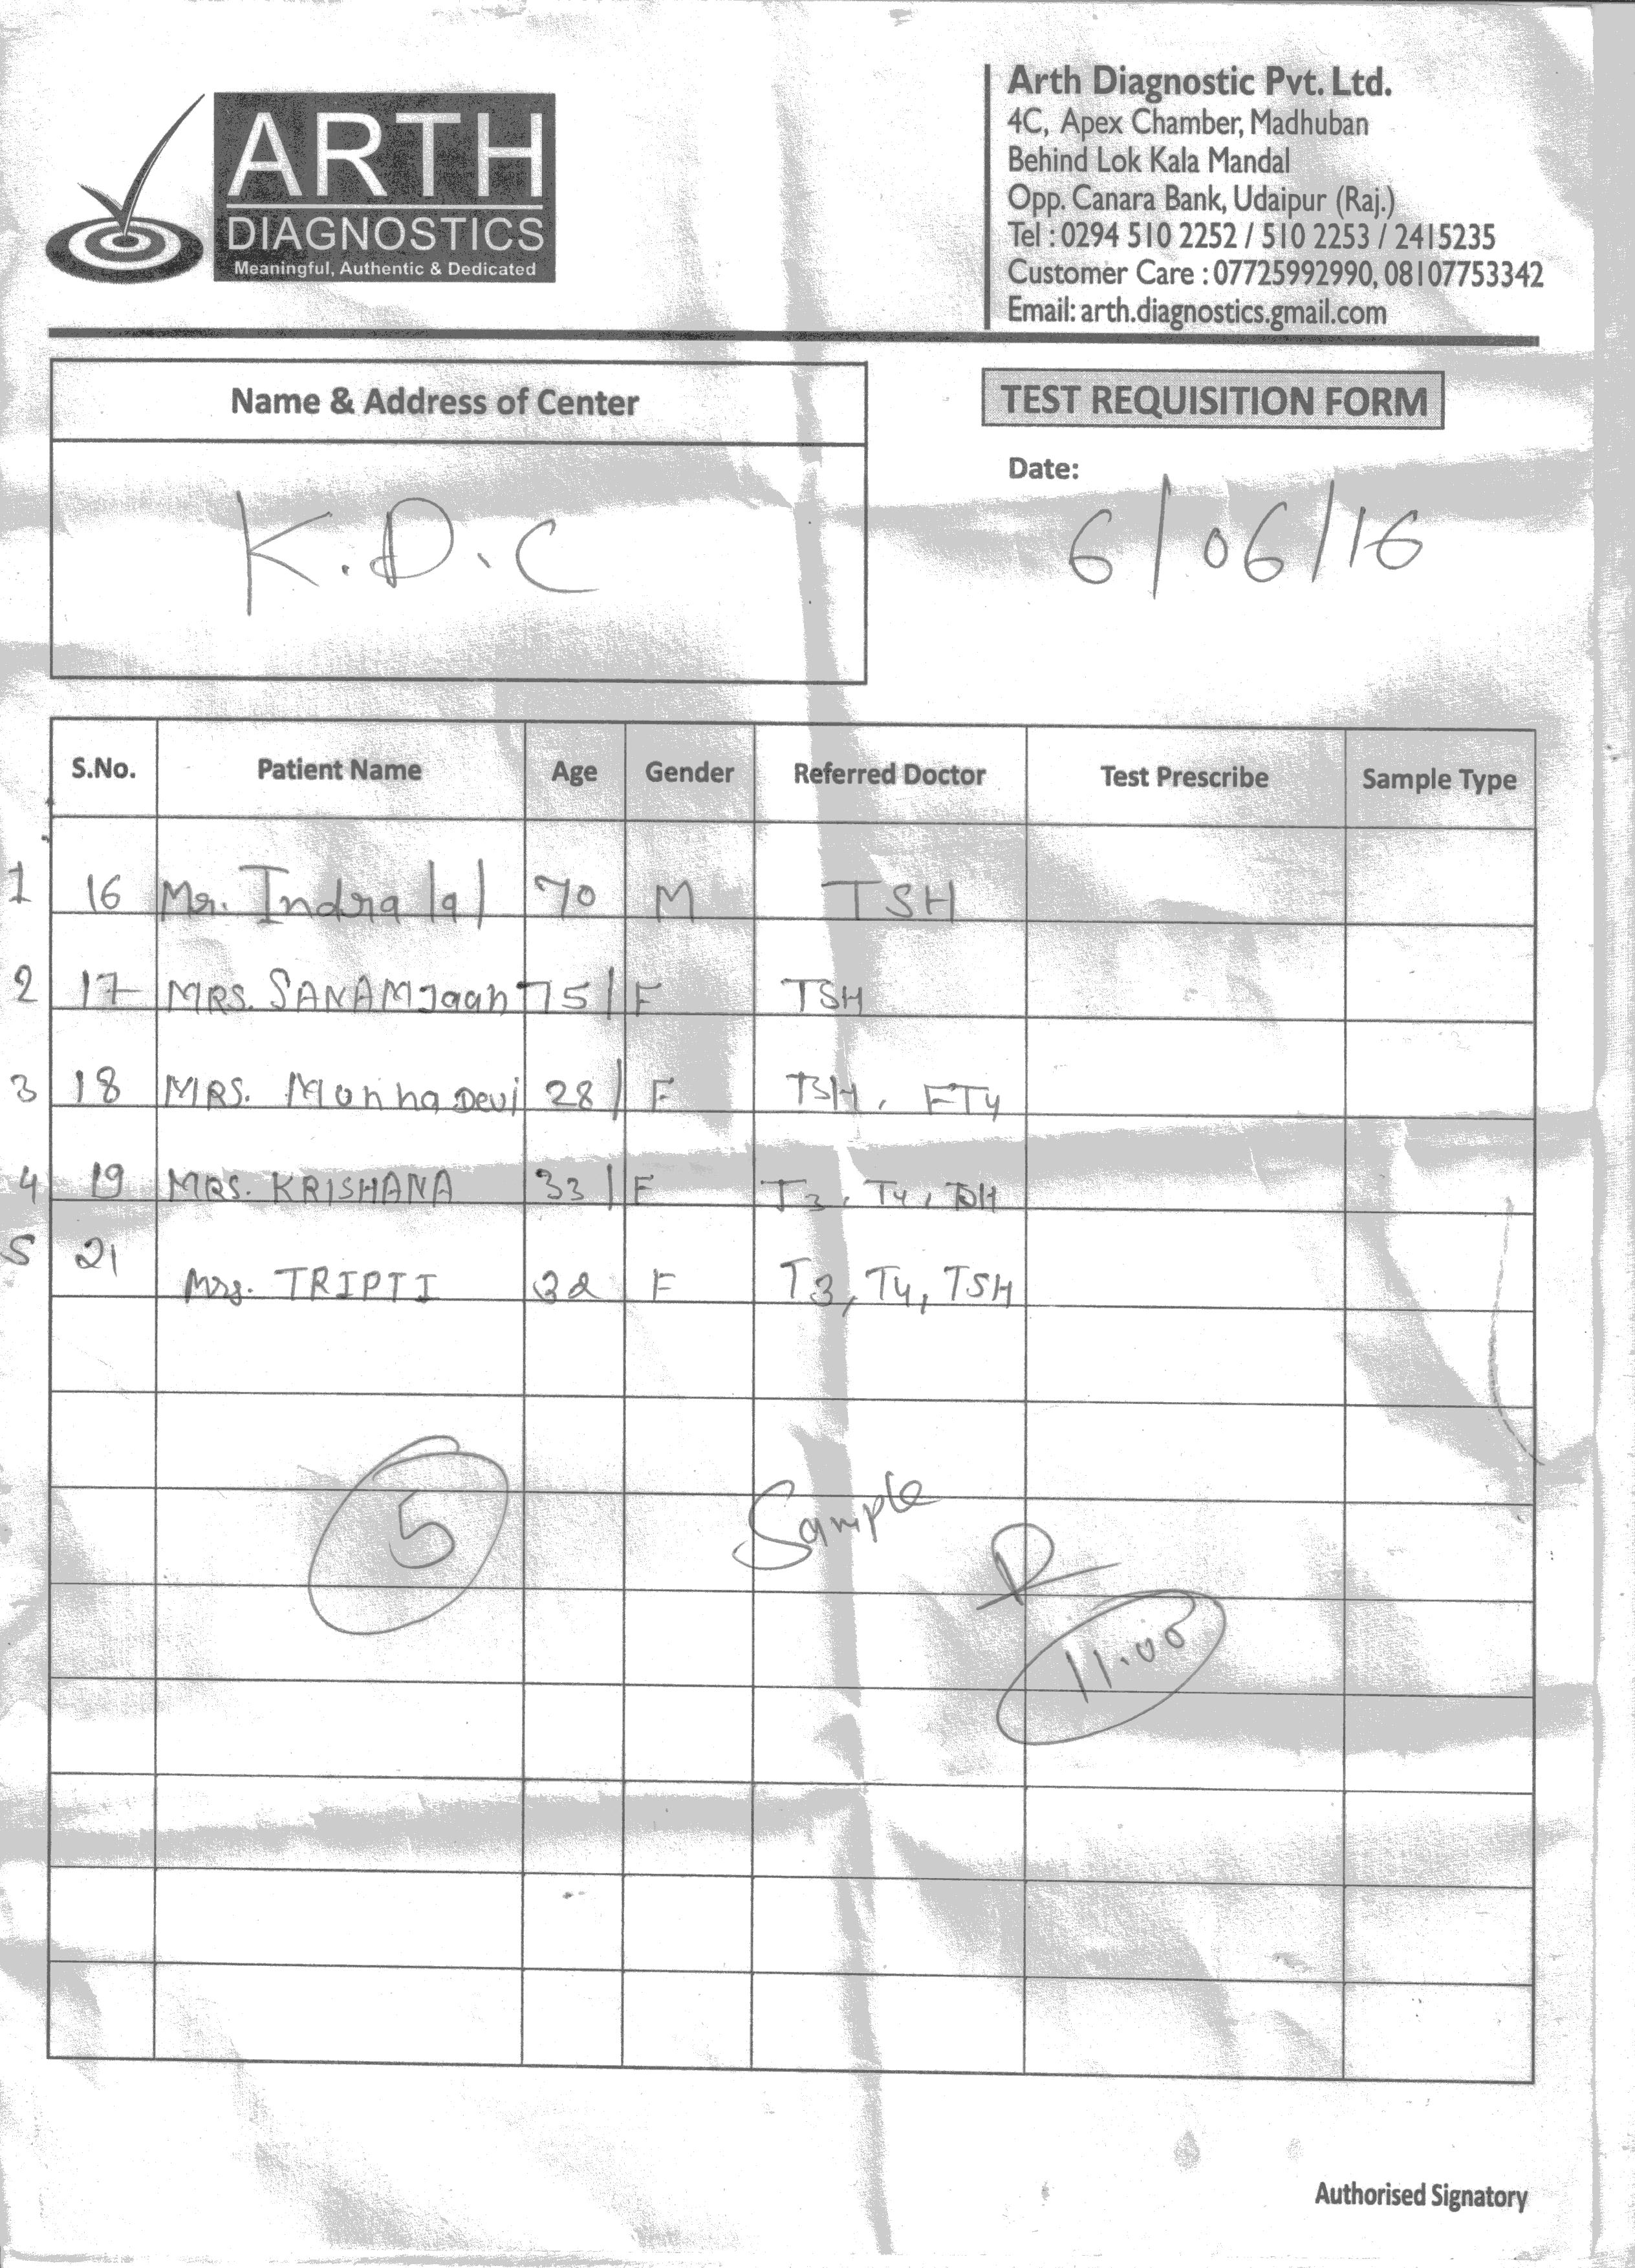 ARTH
DIAGNOSTICS
Meaningful, Authentic & Dedicated
Arth Diagnostic Pvt. Ltd.
4C, Apex Chamber, Madhuban
Behind Lok Kala Mandal
Opp. Canara Bank, Udaipur (Raj.)
Tel : 0294 510 2252 / 510 2253 / 2415235
Customer Care : 07725992990, 08107753342
Email: arth.diagnostics.gmail.com
Name & Address of Center
K.D.C
TEST REQUISITION FORM
Date:
6/06/16
S.No. Patient Name Age Gender Referred Doctor Test Prescribe Sample Type
1 16 Mr. Indra lal 70 M TSH
2 17 MRS. SANAM Jaan 75/ F TSH
3 18 MRS. Monha Devi 28/ F TSH, FT4
4 19 MRS. KRISHANA 33/ F T3, T4, TSH
5 21 Mrs. TRIPTI 32 F T3, T4, TSH
5
Sample
R
11.00
Authorised Signatory